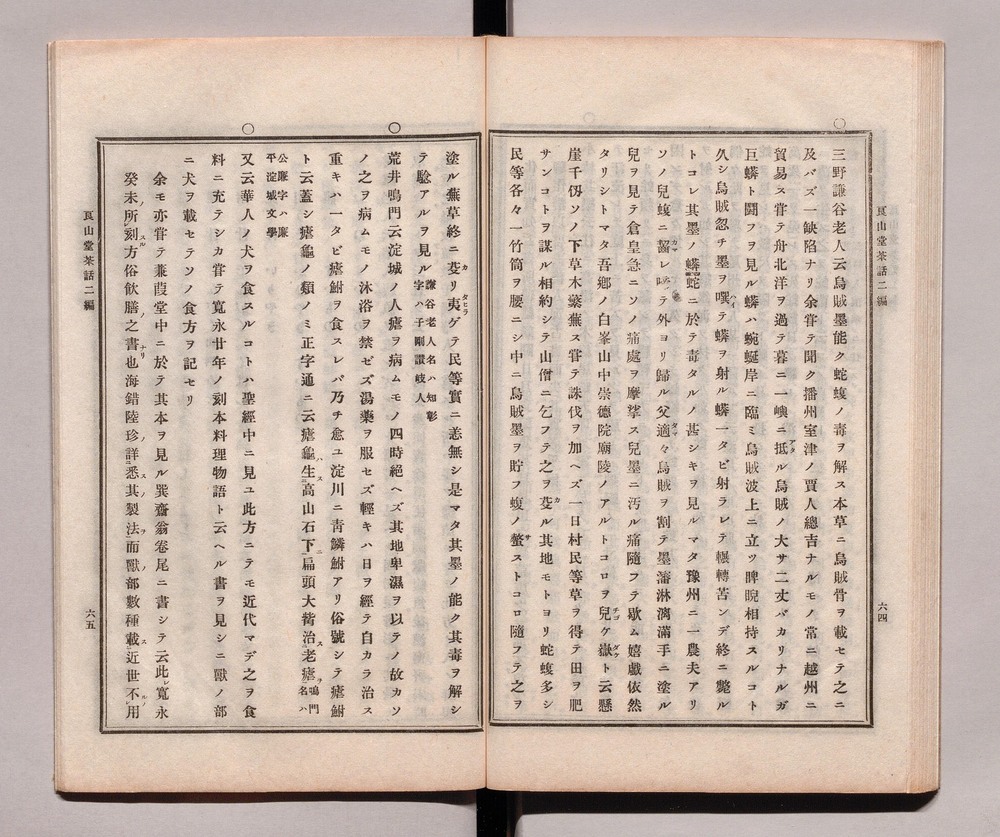 ○
三野謙谷老人云烏賊墨能ク蛇蝮ノ毒ヲ解ス本草ニ烏賊骨ヲ載セテ之ニ
及バズ一缺陷ナリ余甞テ聞ク播州室津ノ賈人總吉ナルモノ常ニ越州ニ
貿易ス甞テ舟北洋ヲ過テ暮ニ一嶼ニ抵アタル烏賊ノ大サ二丈バカリナルガ
巨蟒ト鬪フヲ見ル蟒ハ蜿蜒岸ニ臨ミ烏賊波上ニ立ツ睥睨相持スルコト
久シ烏賊忽チ墨ヲ噀ハイテ蟒ヲ射ル蟒一タビ射ラレテ輾轉苦ンデ終ニ斃ル
トコレ其墨ノ蟒蛇ニ於テ毒タルノ甚シキヲ見ルマタ豫州ニ一農夫アリ
ソノ兒蝮ニ齧カマレ テ外ヨリ歸ル父適タマ々烏賊ヲ割テ墨瀋淋漓滿手ニ塗ル
兒ヲ見テ倉皇急ニソノ痛處ヲ摩挲ス兒墨ニ汚ル痛隨フテ歇ム嬉戲依然
タリシトマタ吾鄕ノ白峯山中崇德院廟陵ノアルトコロヲ兒チゴケ嶽ダケト云懸
崖千仭ソノ下草木蘩蕪ス甞テ誅伐ヲ加ヘズ一日村民等草ヲ得テ田ヲ肥
サンコトヲ謀ル相約シテ山僧ニ乞フテ之ヲ芟カル其地モトヨリ蛇蝮多シ
民等各々一竹筒ヲ腰ニシ中ニ烏賊墨ヲ貯フ蝮ノ螫サストコロ隨フテ之ヲ
艮山堂茶話二編
六四
塗ル蕪草終ニ芟カリ夷タヒラゲテ民等實ニ恙無シ是マタ其墨ノ能ク其毒ヲ解シ
テ騐アルヲ見ル謙谷老人名ハ知彰
字ハ子剛讃岐人
○
荒井鳴門云淀城ノ人瘧ヲ病ムモノ四時絕ヘズ其地卑濕ヲ以テノ故カソ
ノ之ヲ病ムモノ沐浴ヲ禁ゼズ湯藥ヲ服セズ輕キハ日ヲ經テ自カラ治ス
重キハ一タビ瘧鮒ヲ食スレバ乃チ愈ユ淀川ニ靑鱗鮒アリ俗號シテ瘧鮒
ト云蓋シ瘧龜ノ類ノミ正字通ニ云瘧龜生ハス高山石下ニ扁頭大觜治ス老瘧ヲ鳴門
名ハ
公廉字ハ廉
平淀城文學
○
又云華人ノ犬ヲ食スルコトハ聖經中ニ見ユ此方ニテモ近代マデ之ヲ食
料ニ充テシカ甞テ寬永廿年ノ刻本料理物語ト云ヘル書ヲ見シニ獸ノ部
ニ犬ヲ載セテソノ食方ヲ記セリ
余モ亦甞テ蒹葭堂中ニ於テ其本ヲ見ル巽齋翁卷尾ニ書シテ云此レ寬永
癸未ノ所レ刻スル方俗飮膳ノ之書也ナリ海錯陸珍ノ詳ニス悉其ノ製法ヲ而ノ獸部數種載ス近世不ルノレ用
艮山堂茶話二編
六五